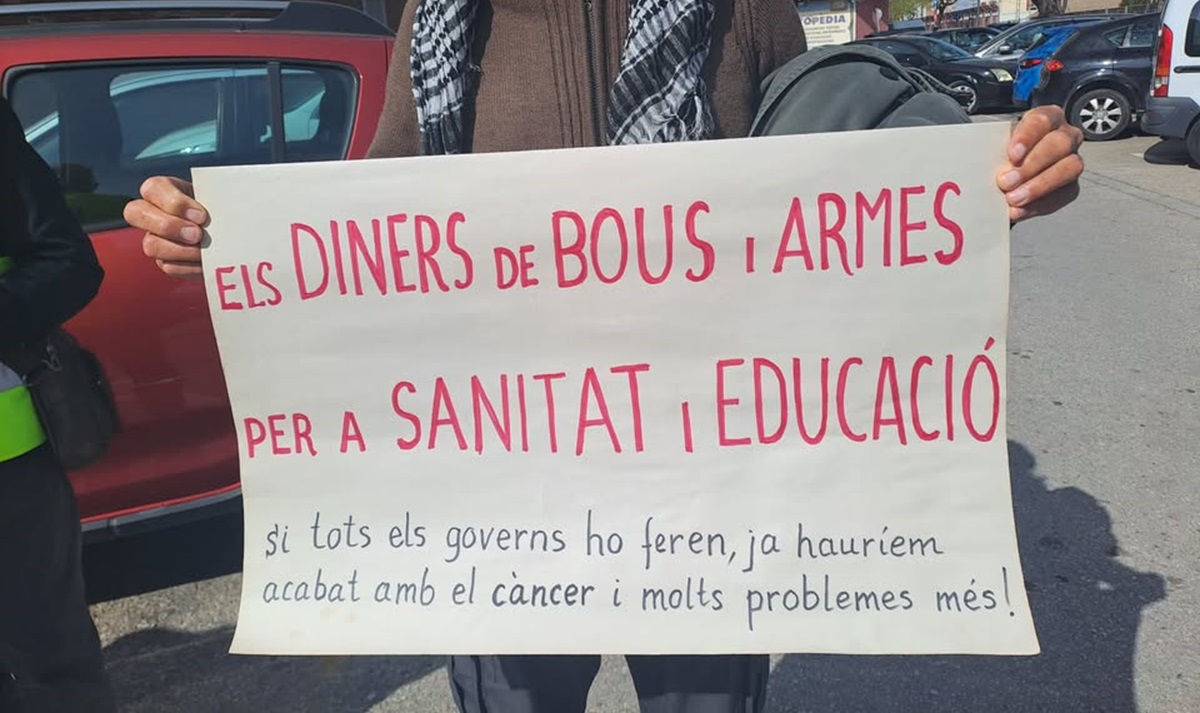 OPEDIA
ELS DINERS DE BOUS I ARMES
PER A SANITAT I EDUCACIÓ
si tots els governs ho feren, ja hauríem
acabat amb el càncer i molts problemes més!